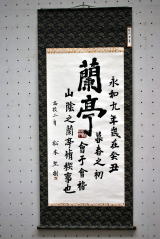 永和九年歳在癸丑
暮春之初
蘭亭
會于會稽
山陰之蘭亭脩禊事也